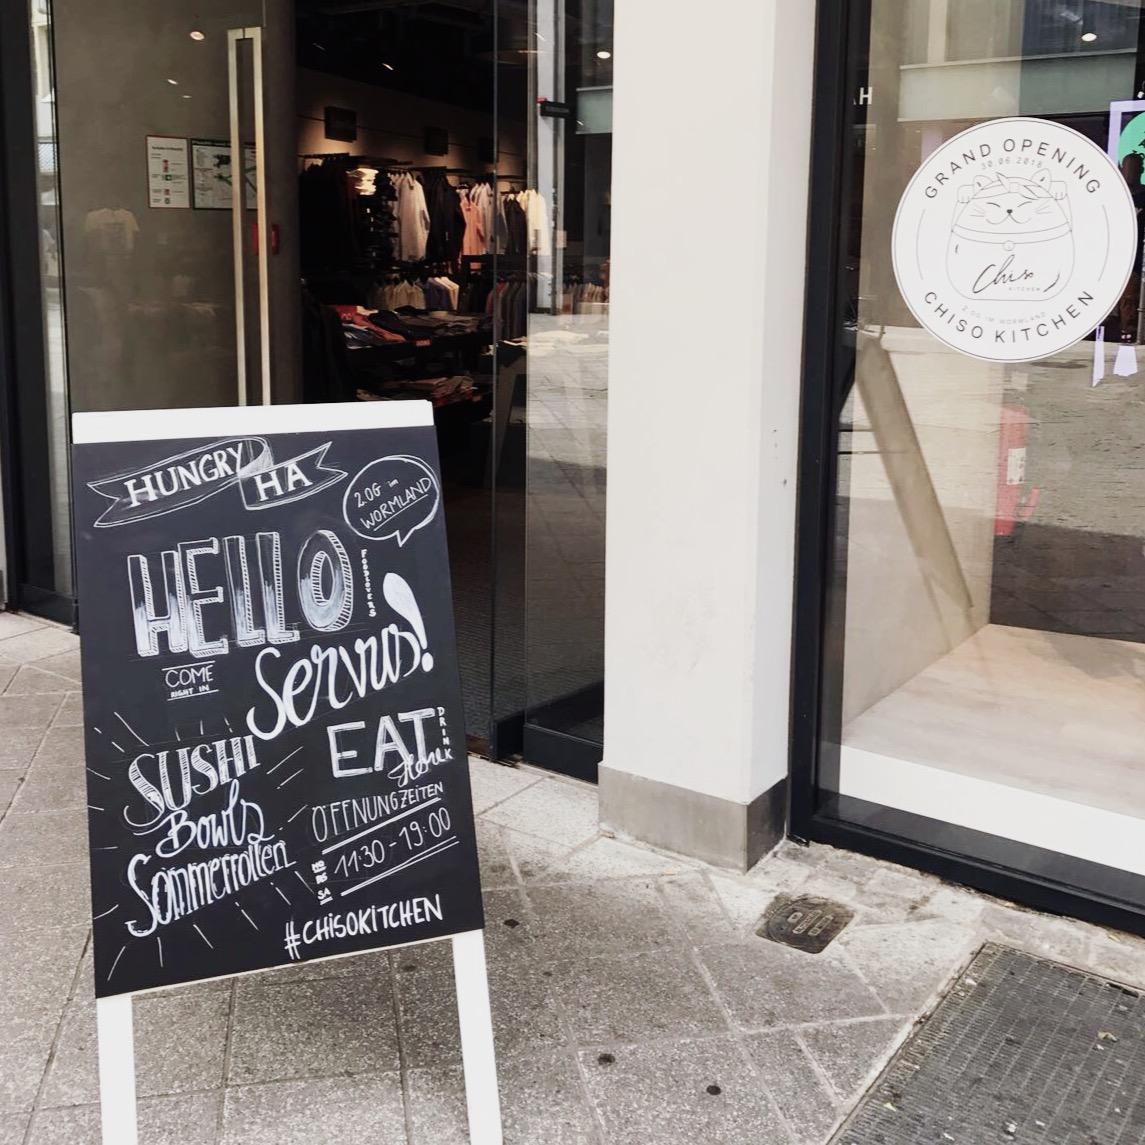 HUNGRY
HA
2.OG im
WORMLAND
HELLO
FOODLOVERS
Servus!
COME
RIGHT IN
SUSHI
Bowls
Sommerrollen
EAT
DRINK
ÖFFNUNGZEITEN
MO
BIS
SA
11:30 - 19:00
#CHISOKITCHEN
GRAND OPENING
30.06.2018
Chiso
KITCHEN
2.OG IM WORMLAND
CHISO KITCHEN
AH